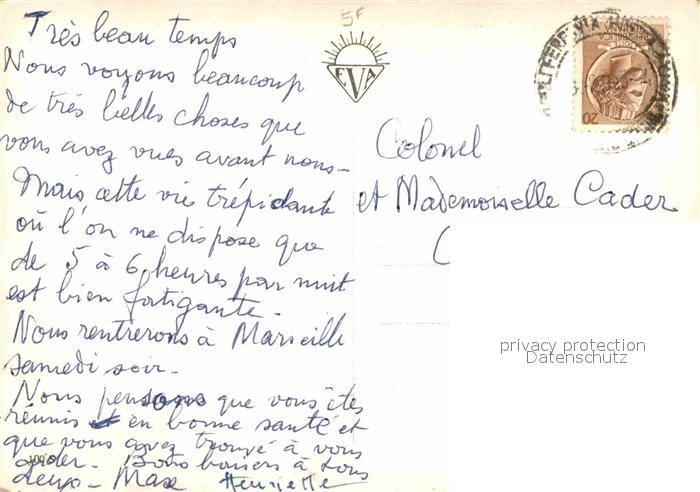 5F
Très beau temps
Nous voyons beaucoup
de très belles choses que
vous avez vues avant nous-
Mais cette vie trépidante
où l'on ne dispose que
de 5 à 6 heures par nuit
est bien fatigante-
Nous rentrerons à Marseille
samedi soir-
Nous pensons que vous êtes
réunis et en bonne santé et
que vous avez trouvé à vous
Bons baisers à tous
deux- Max Henriette
EVA
20
Colonel
et Mademoiselle Cader
(
privacy protection
Datenschutz